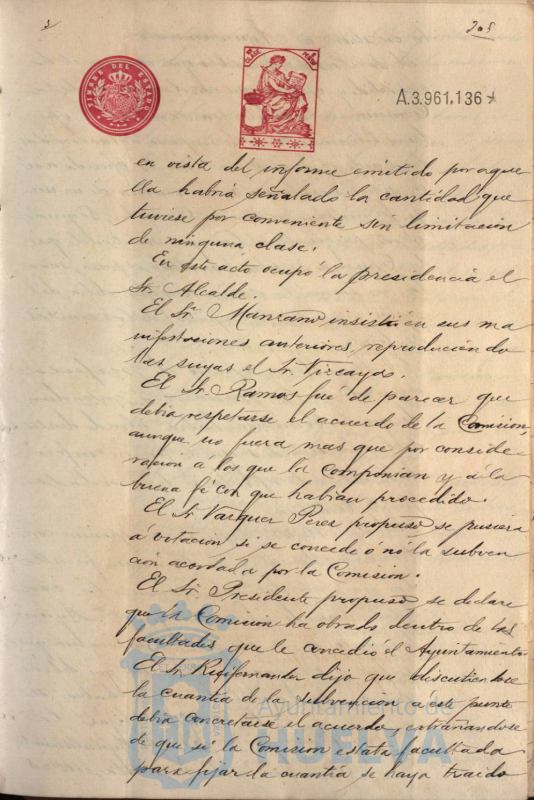 205
TIMBRE DEL ESTADO
A.3.961,136
en vista del informe emitido por aque
lla habria señalado la cantidad que
tuviese por conveniente sin limitacion
de ninguna clase.
En este acto ocupó la presidencia el
Sr. Alcalde.
El Sr. Manzano insistió en sus ma
nifestaciones anteriores, reproduciendo
las suyas el Sr. Vizcaya.
El Sr. Ramos fué de parecer que
debia respetarse el acuerdo de la Comision,
aunque no fuera mas que por conside
racion á los que la componian y á la
buena fé con que habian procedido.
El Sr. Vazquez Perez propuso se pusiera
á votacion si se concede ó nó la subven
cion acordada por la Comision.
El Sr. Presidente propuso se declare
que la Comision ha obrado dentro de las
facultades que le concedió el Ayuntamiento
El Sr. dijo que discutiendose
la cuantia de la subvencion á este punto
debia concretarse el acuerdo, extrañandose
de que si la Comision estaba facultada
para fijar la cuantía se haya traido
Ayuntamiento de
HUELVA